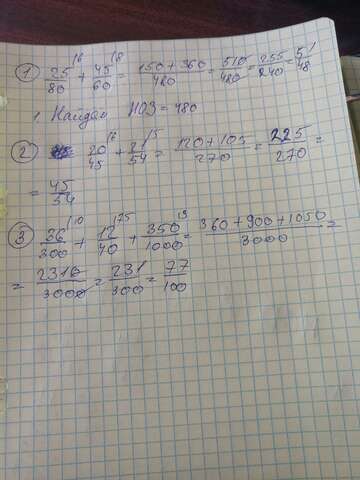 1 25/80 /6 + 45/60 /8 = 150+360/480 = 510/480 = 255/240 = 51/48
1. Найдём НОЗ = 480
2 20/45 /6 + 21/54 /5 = 120+105/270 = 225/270 =
= 45/54
3 36/300 /10 + 12/40 /75 + 350/1000 /3 = 360+900+1050/3000 =
= 2310/3000 = 231/300 = 77/100